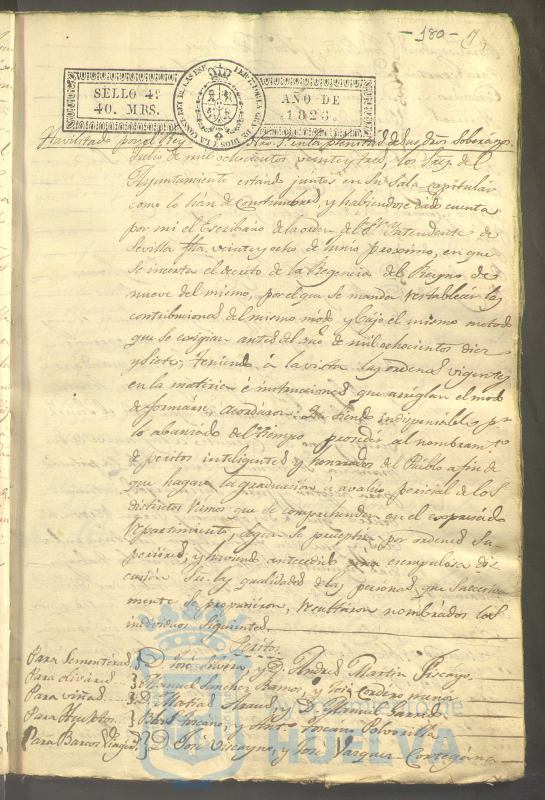 -180-
SELLO 4º
40. MRS.
AÑO DE
1823.
Havilitado por el Rey Ntro. Sr. en la plenitud de sus dros Soberanos.
Julio de mil ochocientos veinte y tres, los Sres. del
Ayuntamiento estando juntos en su Sala Capitular
como lo han de constumbre, y habiendose dado cuenta
por mi el Escribano de la orden del Sr. Intendente de
Sevilla fha. veinte y ocho de Junio proximo, en que
se incerta el decreto de la Regencia del Reyno de
nueve del mismo, por el que se manda restablecer las
contribuciones del mismo modo y bajo el mismo metodo
que se exigian antes del año de mil ochocientos diez
y siete; teniendo á la vista las ordenes vigentes
en la materia é instrucciones que arreglan el modo
de formarse, acordaron: siendo indispensable pr
lo abanzado del tiempo proceder al nombramto
de peritos inteligentes y honrados del Pueblo a fin de
que hagan la graduacion ú avaluo pericial de los
distintos ramos que se comprehenden en el expresado
repartimiento, segun se preceptua por ordenes Su-
periores; y haviendo antecedido una escrupulosa dis-
cusion sre. las qualidades de las personas que succesiva-
mente se propusieron, resultaron nombrados los
individuos siguientes.
Peritos
Para Sementeras } D. José Rivera, y D. Andres Martin Piscayo.
Para olivares } Manuel Sanchez Ramos, y José Cordero menor
Para viñas } D. Matias y D. Manuel Garrido
Para Huertos } Toscano, y Toscano Polvorilla
Para Barcos } D. José Vizcayno, y José Vazquez Cortegana
Ayuntamiento de
HUELVA